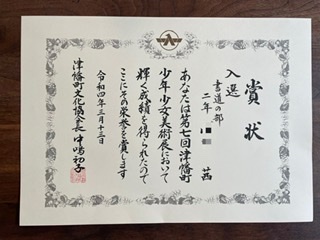 賞状
入選
書道の部
二年 茜
あなたは第七回津幡町
少年少女美術展において
輝く成績を得られたので
ここにその栄誉を賞します
令和四年三月十三日
津幡町文化協会長 中嶋初子